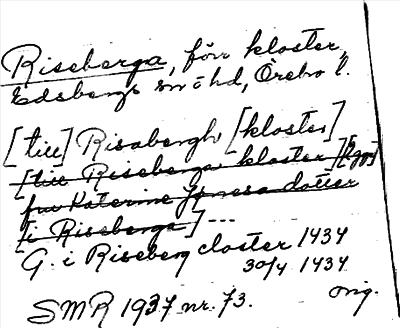 Riseberga, förr kloster,
Edsbergs sn o hd, Örebro l.
[till] Risabergh [kloster]
[till Riseberga kloster]
fru Katerine Jonesa dotter
i Riseberga] ---
G. i Riseberg closter 1434
30/4 1434
SMR 1937 nr. 73. orig.